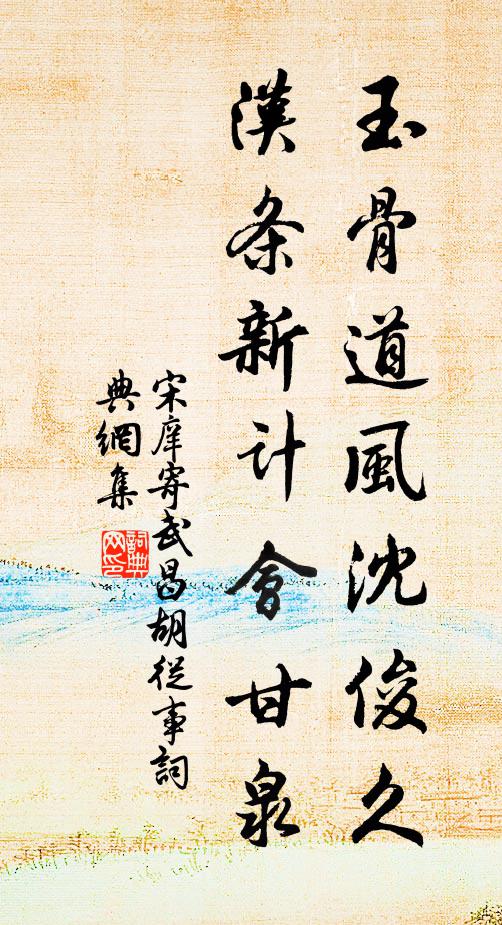 玉骨道風沈俊久
漢条新计會甘泉
宋庠寄武昌胡從事詞
典網集
詞典
网印